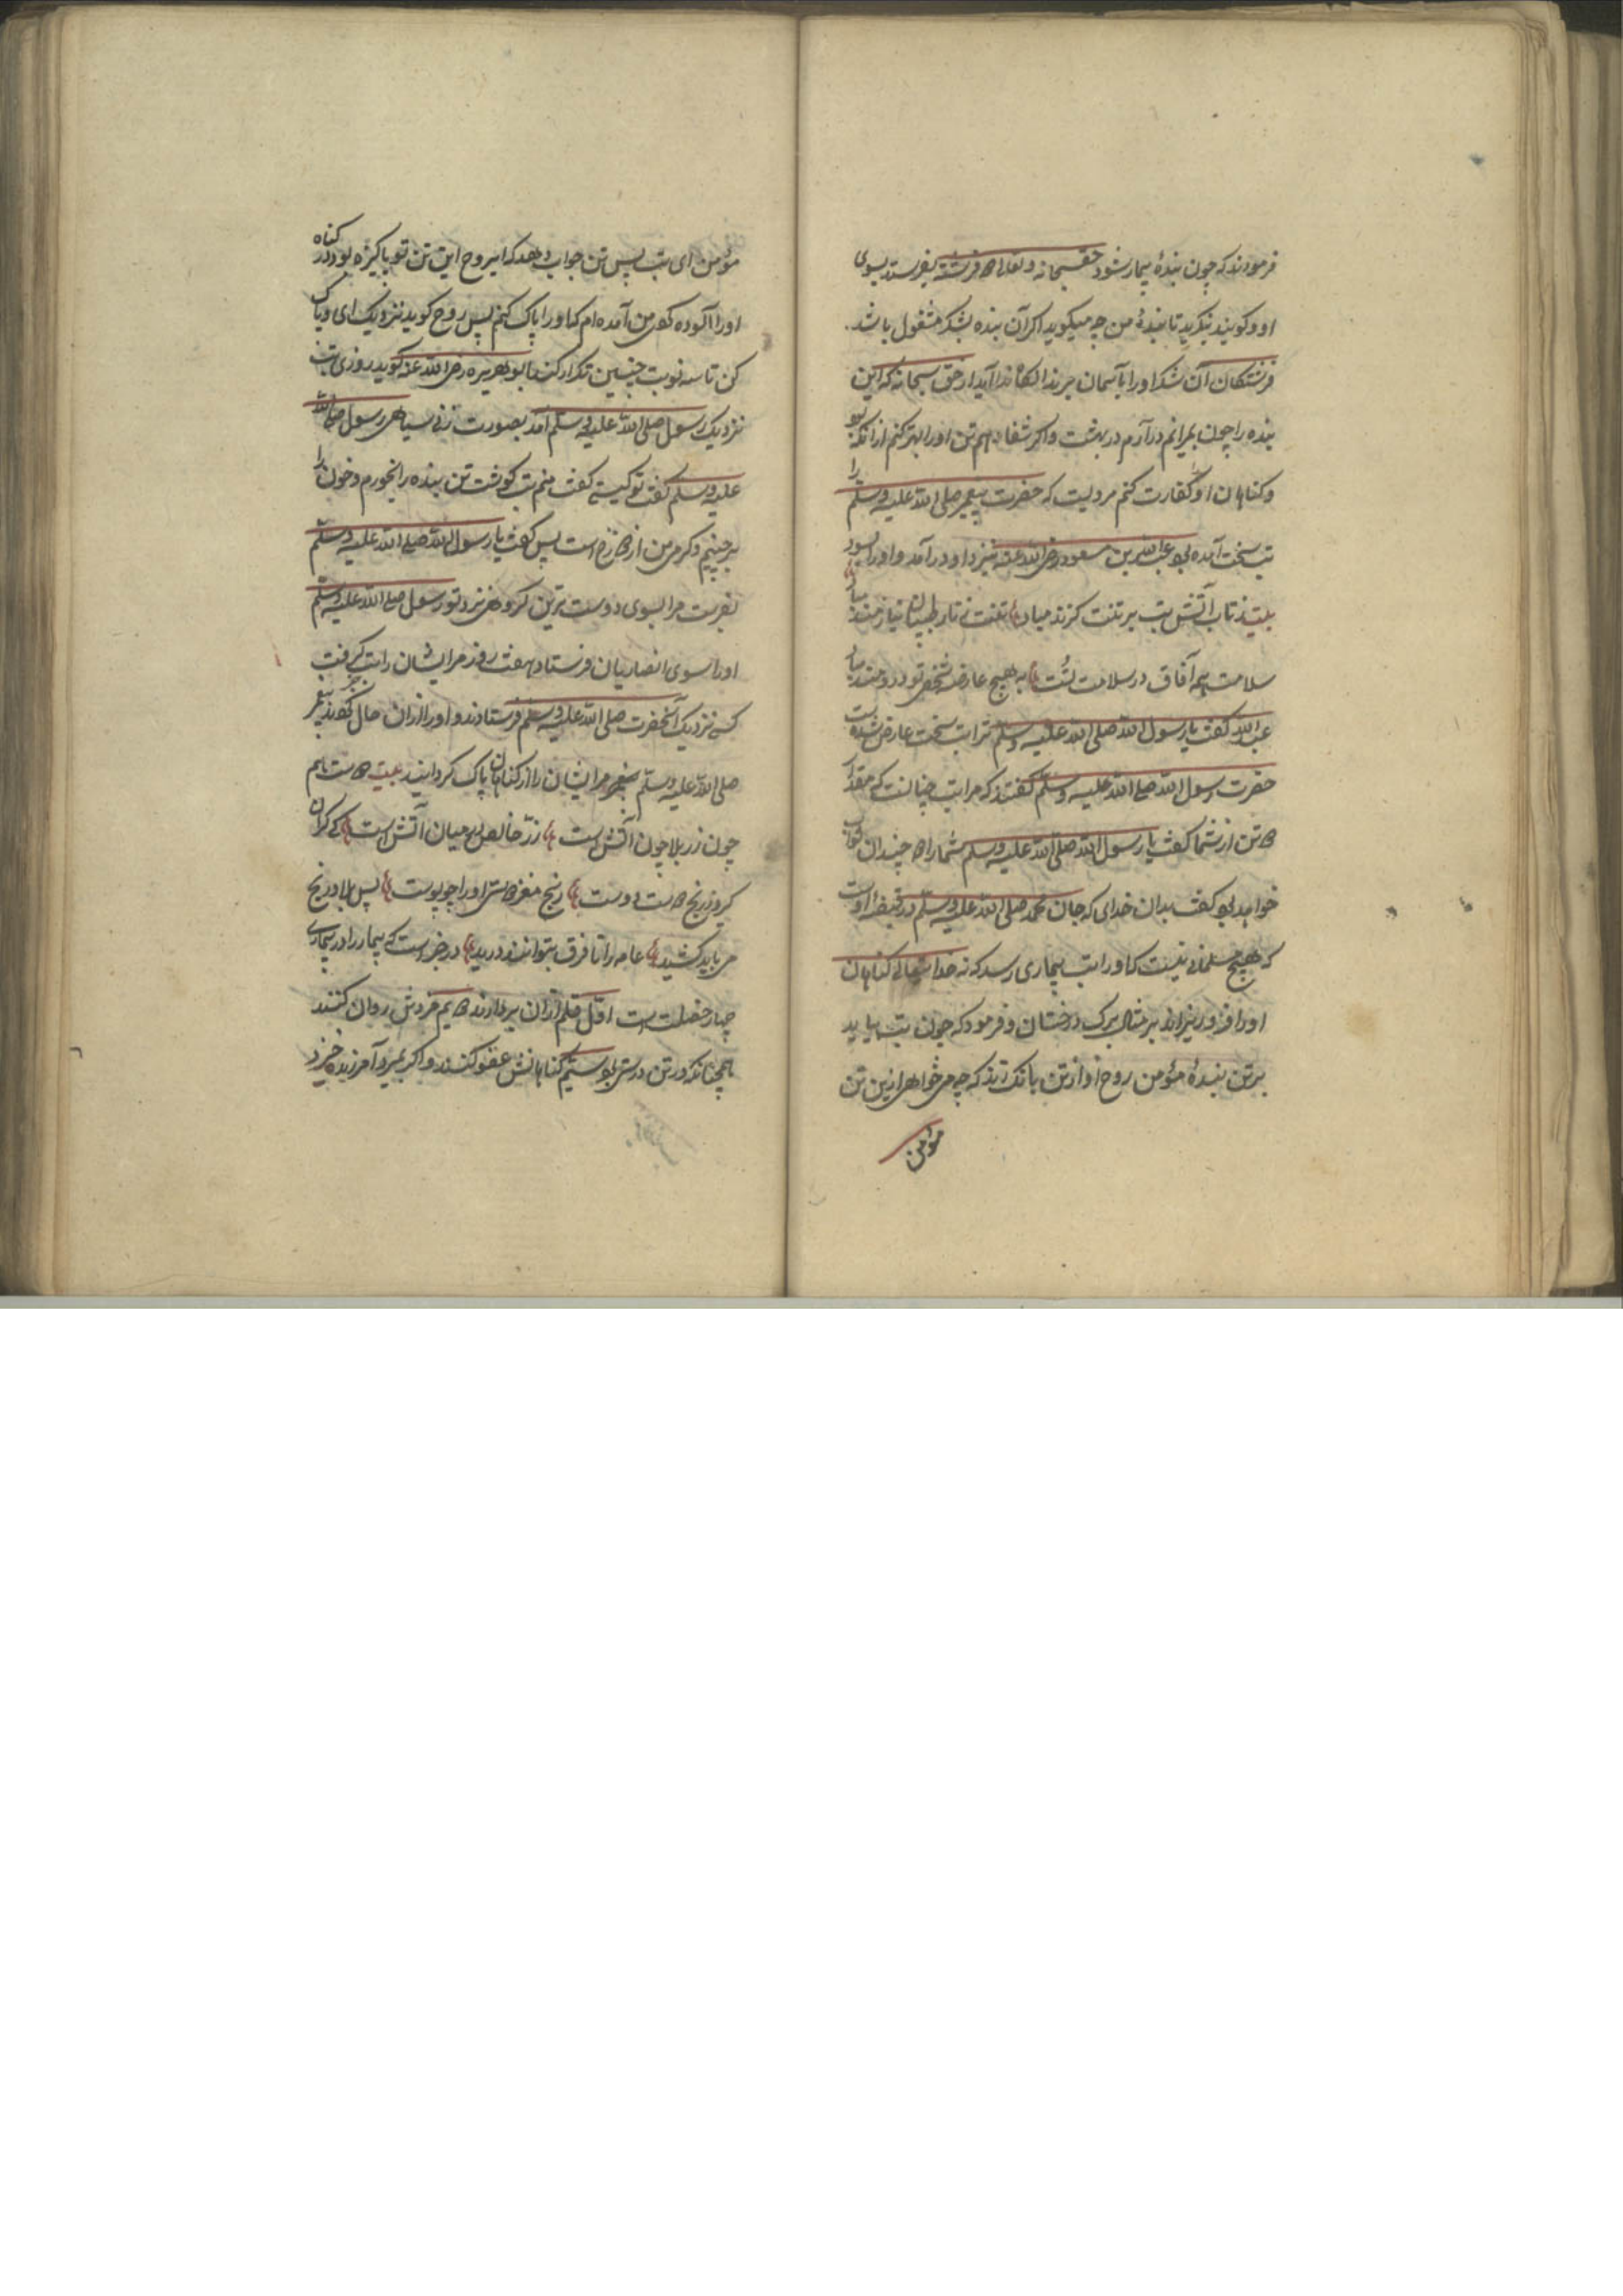 فرمودند که چون بندهٔ بیمار شود حق سبحانه و تعالی دو فرشته بفرستد بسوی
او و گویند بنگرید تا بندهٔ من چه میگوید اگر آن بنده بشکر مشغول باشد
فرشتگان آن شکر او را بآسمان برند آنگاه ندا آید از حق سبحانه که این
بنده را چون بمیرانم درآرم در بهشت و اگر شفا دهم تن او را بهتر کنم از آنکه بود
و گناهان او را کفارت کنم مرویست که حضرت پیغمبر صلی الله علیه وسلم را
تب سخت آمده بود عبدالله بن مسعود رضی الله عنه نیز در آمد و او را بسود
بیت ز تاب آتش تب بر تنت گزند مباد تنت بناز طبیبان نیازمند مباد
سلامت همه آفاق در سلامت تست به هیچ عارضه شخص تو دردمند مباد
عبدالله گفت یا رسول الله صلی الله علیه وسلم ترا تب سخت عارض شده است
حضرت رسول الله صلی الله علیه وسلم گفتند که مرا تب چنانست که مقدار
دو تن از شما گفت یا رسول الله صلی الله علیه وسلم شما را دو چندان ثواب
خواهد بود گفت بدان خدای که جان محمد صلی الله علیه وسلم در قبضهٔ اوست
که هیچ مسلمانی نیست که او را تب بیماری رسد که نه خدا تعالی گناهان
او را فرو ریزاند بر مثال برگ درختان و فرمود که چون تب بیاید
بر تن بندهٔ مؤمن روح او از تن بانک زند که چه می خواهی ازین تن
مؤمن
مؤمن ای تب پس تن جواب دهد که ای روح این تن تو پاکیزه بود در گناه
او را آلوده کرد من آمده ام که او را پاک کنم پس روح گوید نزدیک ای و پاک
کن تا سه نوبت چنین تکرار کند ابو هریره رضی الله عنه گوید روزی تب
نزدیک رسول صلی الله علیه وسلم آمد بصورت زنی سیاهی رسول صلی الله
علیه وسلم گفت تو کیستی گفت منم تب گوشت تن بنده را بخورم و خون را
برچینم و گرمی من از دوزخ است پس گفت یا رسول الله صلی الله علیه وسلم
بفرست مرا بسوی دوست ترین گروهی نزد تو رسول صلی الله علیه وسلم
او را سوی انصاریان فرستاد هفت روز مر ایشان را تب گرفت
کسی نزدیک آنحضرت صلی الله علیه وسلم فرستادند و او را از آن حال گفتند پیغمبر
صلی الله علیه وسلم مر ایشان را از گناهان پاک گردانید بیت دوست هم
چون زر بلا چون آتش است زر خالص در میان آتش است کی گران
گیرد ز رنج دوست دوست رنج مغز دوستی او را چو پوست پس بلا و رنج
می باید کشید عامه را تا فرق بتوانند دید در خبر است که بیمار را در بیماری
چهار خصلت است اول قلم از آن بردارند دویم مزدش روان کنند
همچنانکه در تن درستی بود سیم گناهانش عفو کنند و اگر بمیرد آمرزیده خیزد